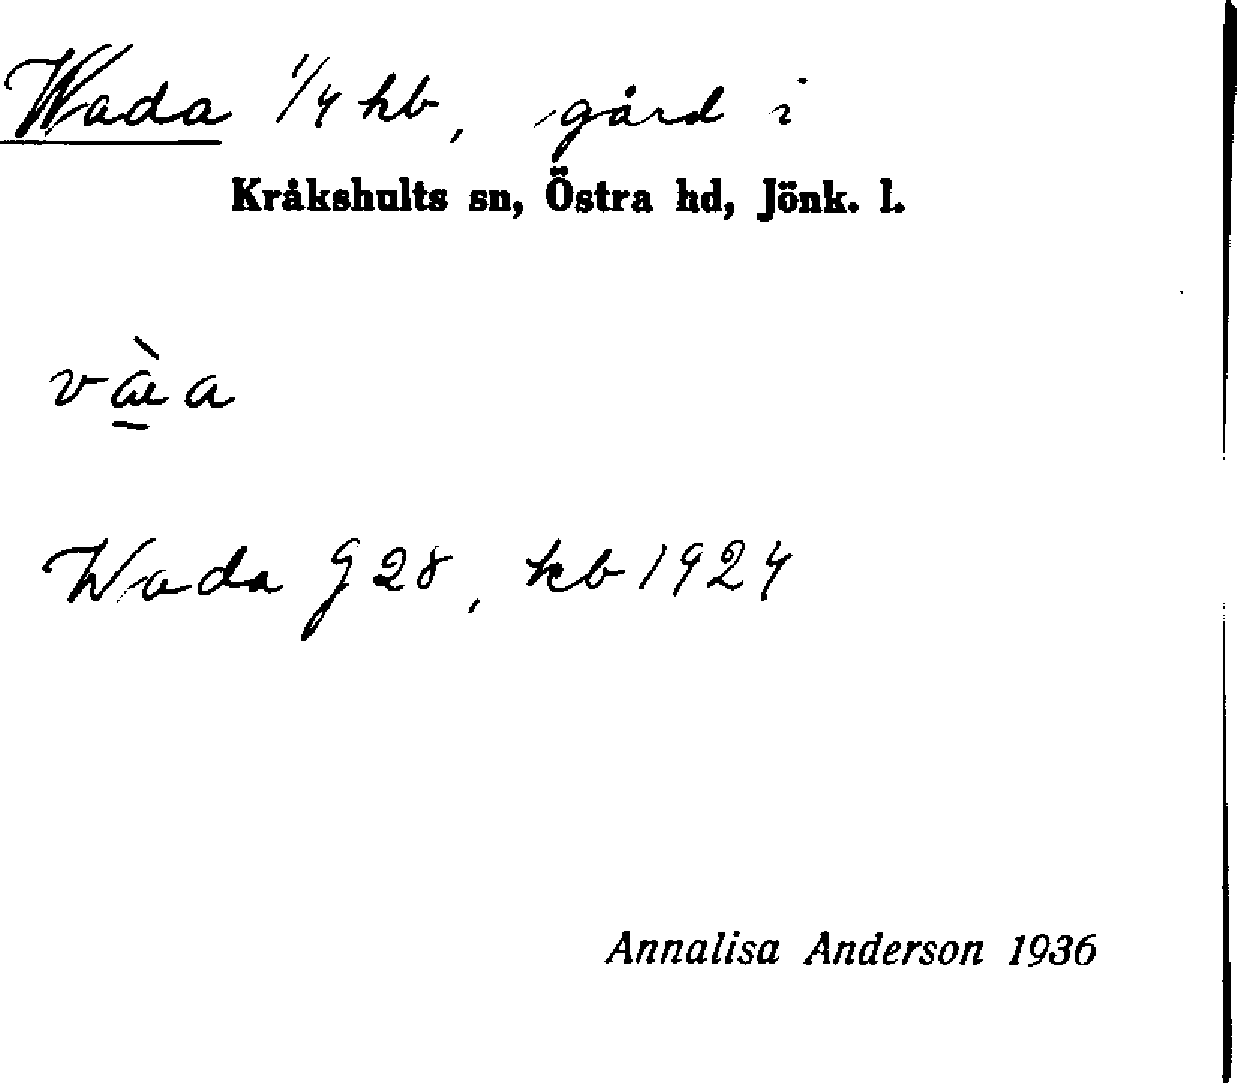 Wada 1/4 hb, gård i
Kråkshults sn, Östra hd, Jönk. l.
væ̀a
Wada G28, kb 1924
Annalisa Anderson 1936